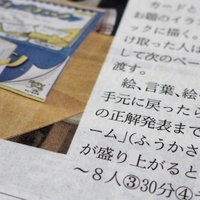 カードと
お題のイラ
ックに描く。
け取った人は
して次のペー
渡す。
絵、言葉、絵
手元に戻ったら
の正解発表まで
ーム」(ふうかさ
が盛り上がると
～8人③30分④